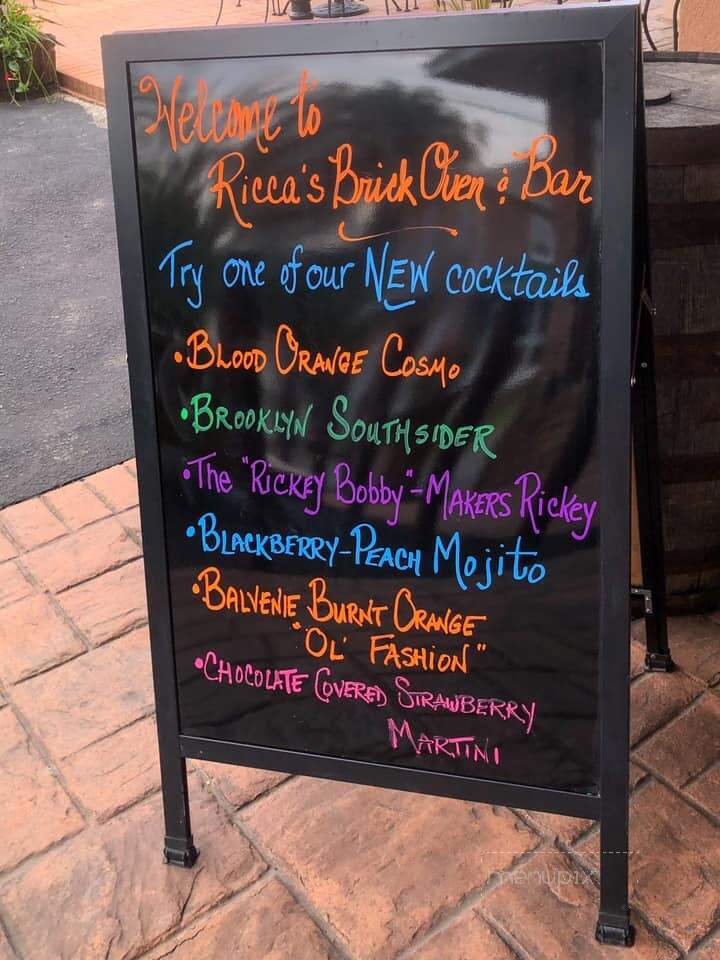 Welcome to
Ricca's Brick Oven & Bar
Try one of our NEW cocktails
• BLOOD ORANGE COSMO
• BROOKLYN SOUTHSIDER
• The "RICKEY Bobby" - MAKERS Rickey
• BLACKBERRY-PEACH Mojito
• BALVENIE BURNT ORANGE
"OL' FASHION"
• CHOCOLATE COVERED STRAWBERRY
MARTINI
menupix